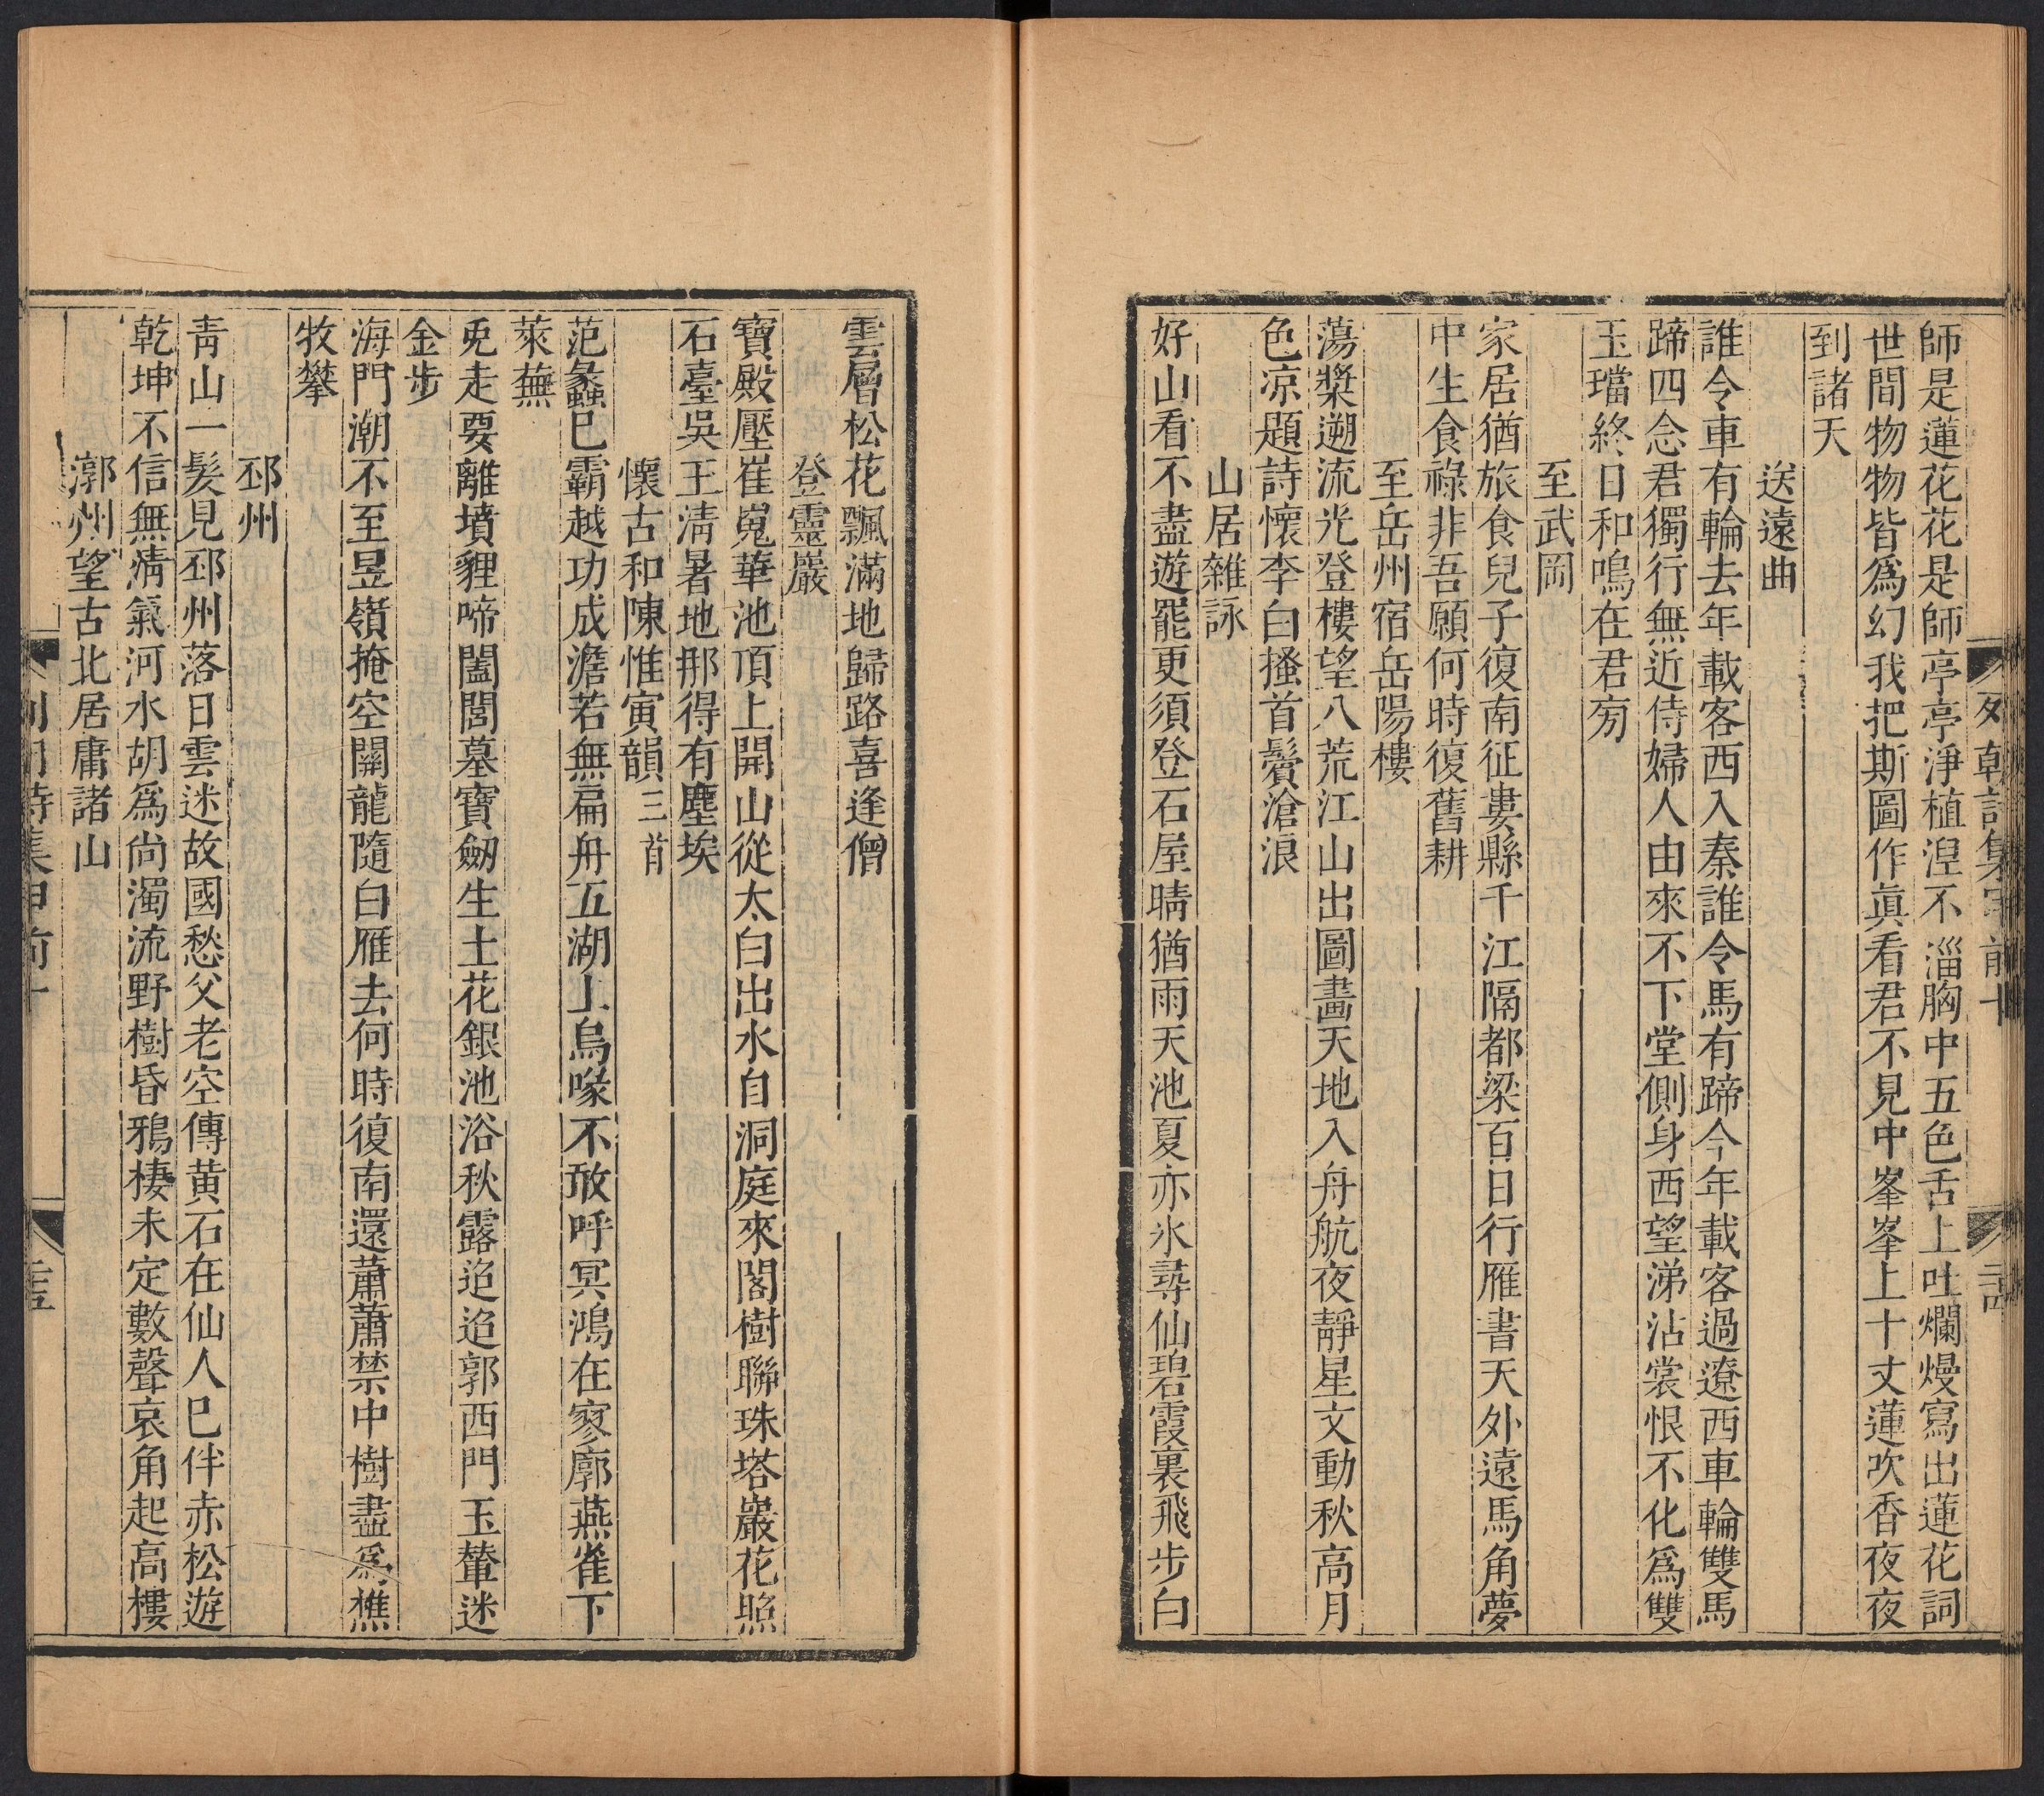 師是蓮花花是師亭亭淨植湼不淄胸中五色舌上吐爛熳寫出蓮花詞
世間物物皆爲幻我把斯圖作眞看君不見中峯峯上十丈蓮吹香夜夜
到諸天
送遠曲
誰令車有輪去年載客西入秦誰令馬有蹄今年載客過遼西車輪雙馬
蹄四念君獨行無近侍婦人由來不下堂側身西望涕沾裳恨不化爲雙
玉璫終日和鳴在君旁
至武岡
家居猶旅食兒子復南征婁縣千江隔都梁百日行雁書天外遠馬角夢
中生食祿非吾願何時復舊耕
至岳州宿岳陽樓
蕩槳遡流光登樓望八荒江山出圖畵天地入舟航夜靜星文動秋高月
色凉題詩懷李白搔首鬢滄浪
山居雜詠
好山看不盡遊罷更須登石屋晴猶雨天池夏亦氷尋仙碧霞裏飛步白
雲層松花飄滿地歸路喜逢僧
登靈巖
寶殿壓崔嵬華池頂上開山從太白出水自洞庭來閣樹聯珠塔巖花照
石臺吳王淸暑地那得有塵埃
懷古和陳惟寅韻三首
范蠡巳霸越功成澹若無扁舟五湖上烏喙不敢呼冥鴻在寥廓燕雀下
萊蕪
兎走要離墳貍啼闔閭墓寶劒生土花銀池浴秋露迢迢郭西門玉輦迷
金步
海門潮不至昱嶺掩空關龍隨白雁去何時復南還蕭蕭禁中樹盡爲樵
牧攀
邳州
靑山一髮見邳州落日雲迷故國愁父老空傳黄石在仙人巳伴赤松遊
乾坤不信無淸氣河水胡爲尙濁流野樹昏鴉棲未定數聲哀角起高樓
漷州望古北居庸諸山
列朝詩集甲前十
二十五